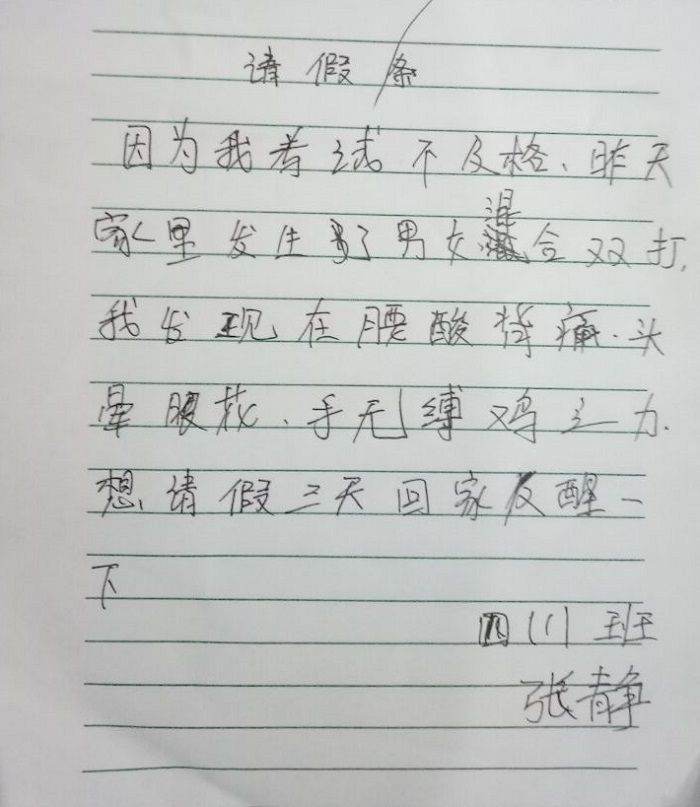 请假条
因为我考试不及格、昨天
家里发生了男女混合双打,
我发现在腰酸背痛.头
晕眼花、手无缚鸡之力.
想请假三天回家反醒一
下
四(1)班
张静